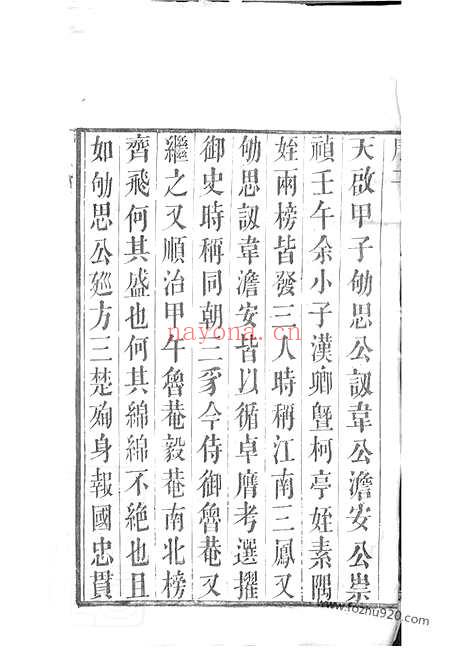 天啟甲子劬思公訒韋公澹安公崇
禎壬午余小子漢卿曁柯亭姪素隅
姪兩榜皆發三人時稱江南三鳳又
劬思訒韋澹安皆以循卓膺考選擢
御史時稱同朝三豸今侍御魯菴又
繼之又順治甲午魯菴毅菴南北榜
齊飛何其盛也何其綿綿不絶也且
如劬思公廵方三楚殉身報國忠貫
nayona.cn
www.fozhu920.com